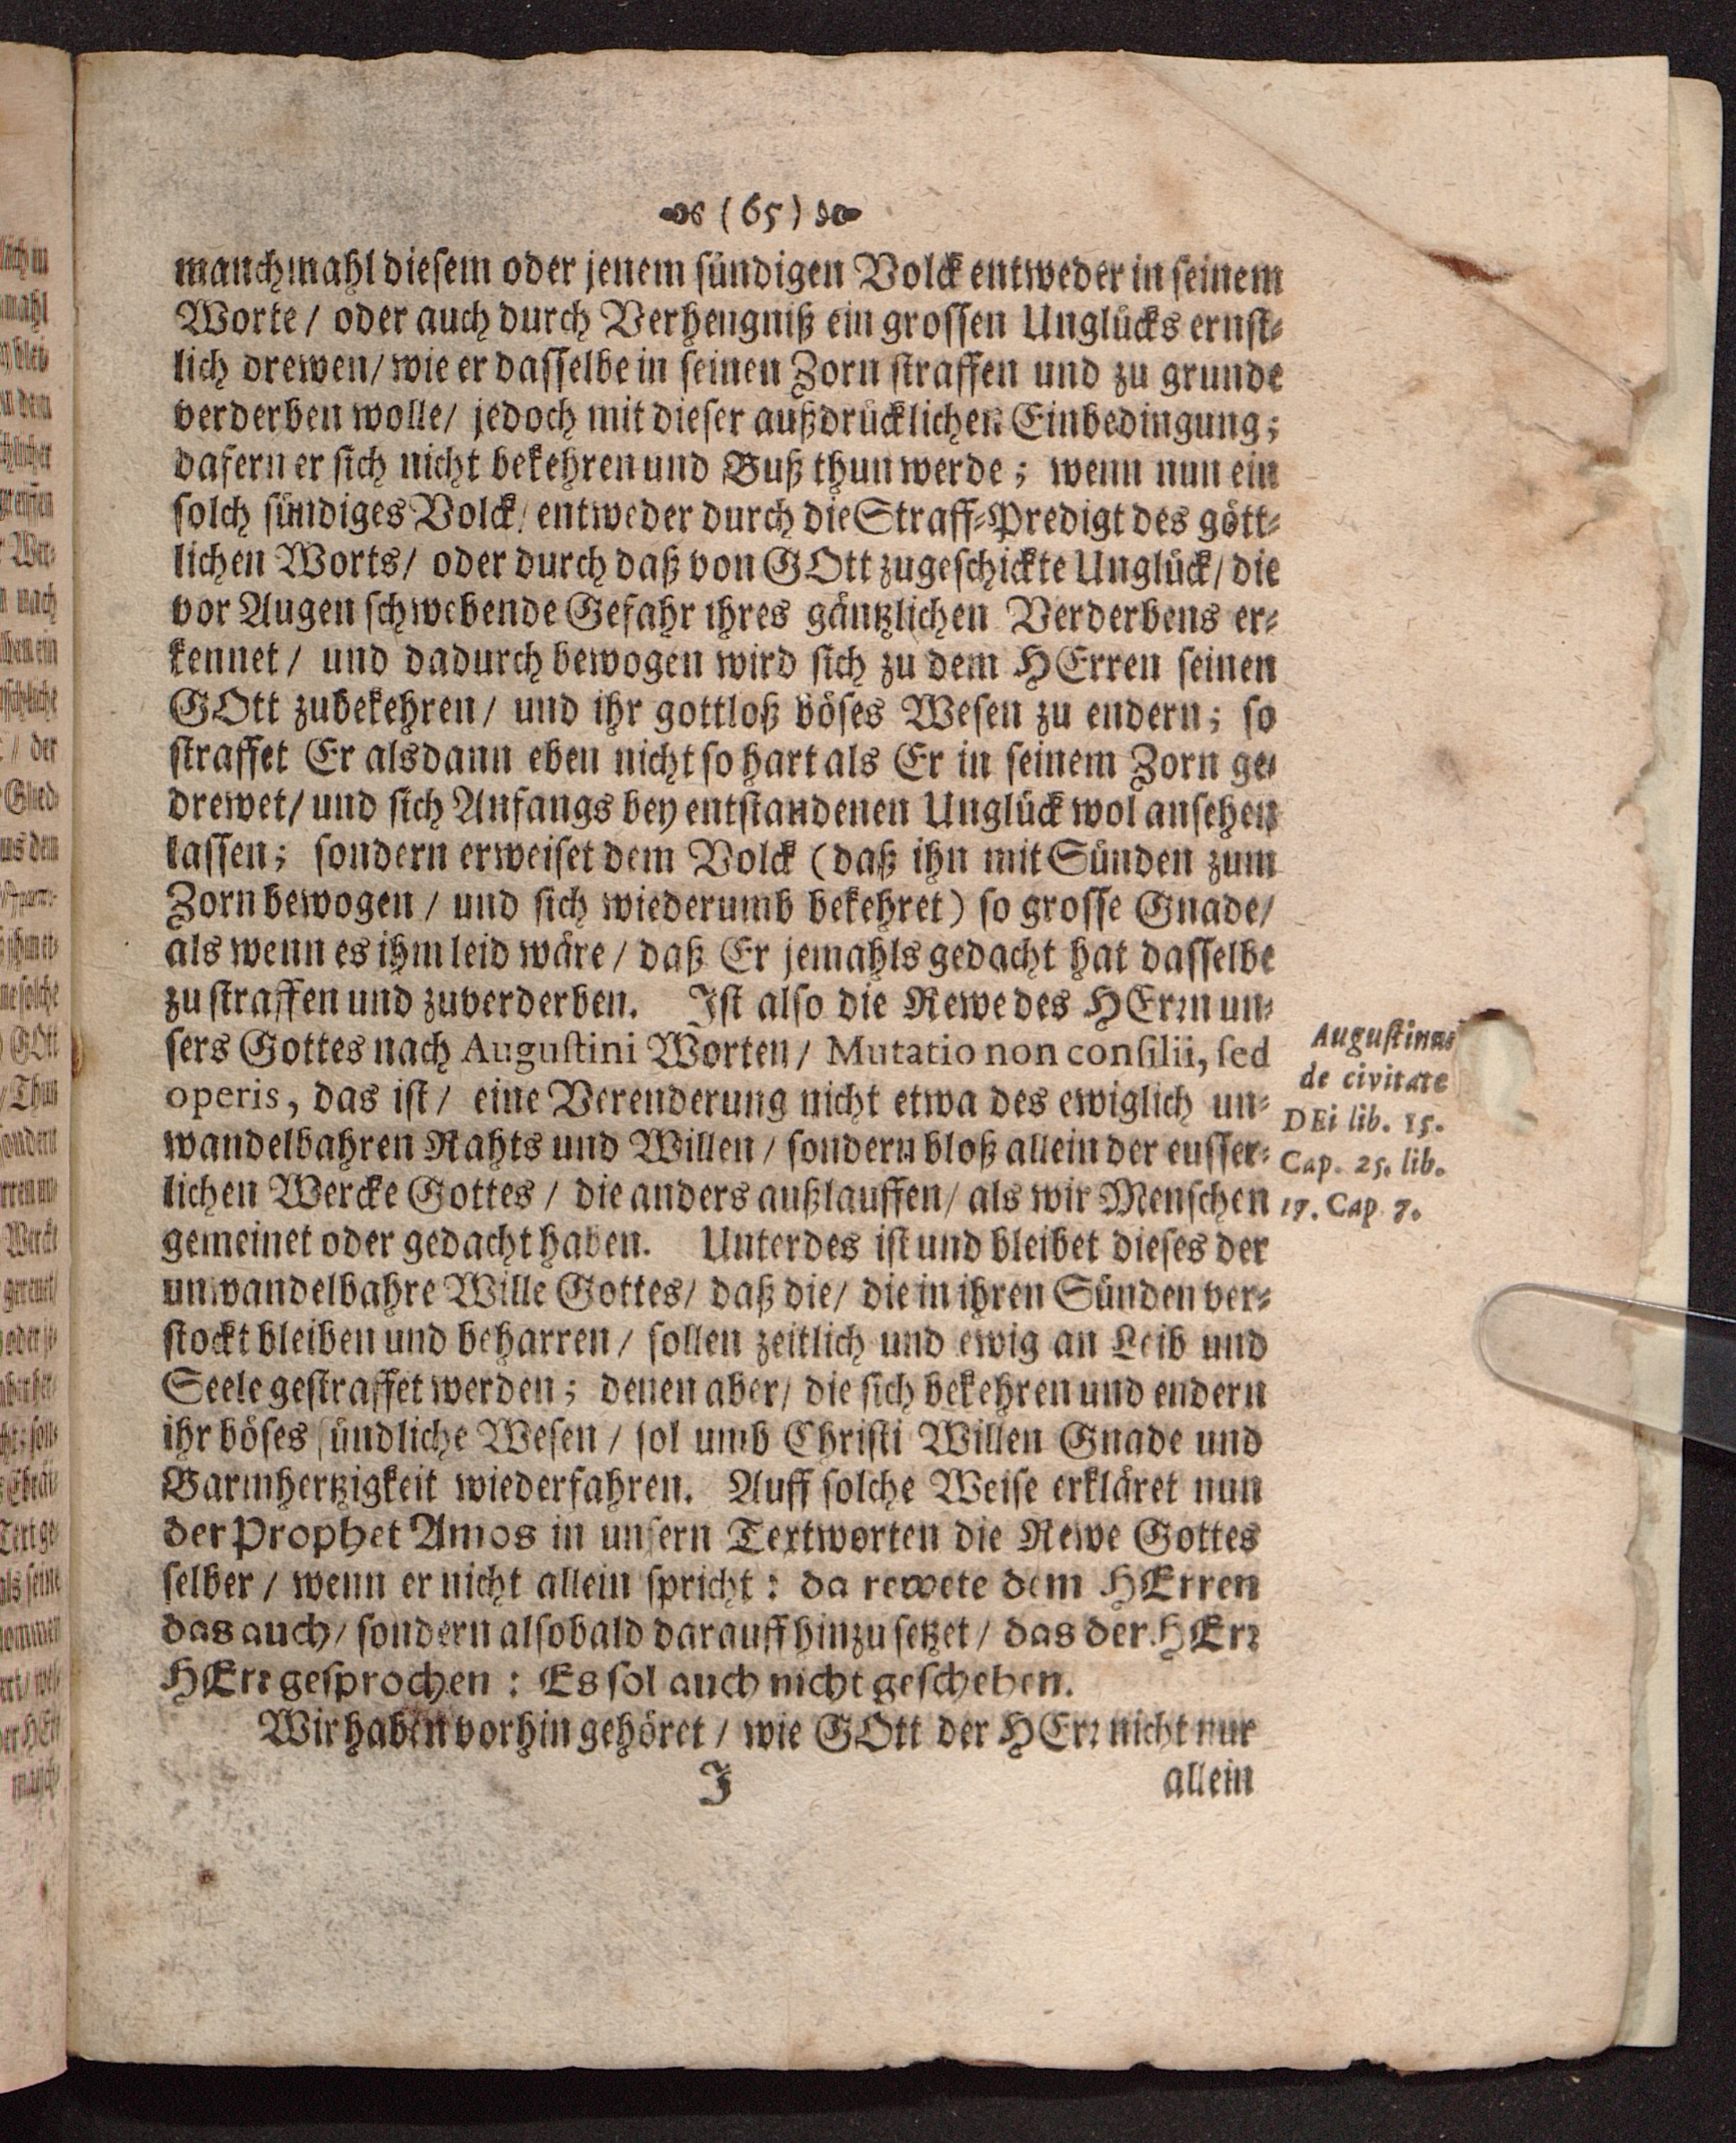 (65)
manchmahl diesem oder jenem sündigen Volck entweder in seinem
Worte / oder auch durch Verhengniß ein grossen Unglücks ernst-
lich drewen / wie er dasselbe in seinen Zorn straffen und zu grunde
verderben wolle / jedoch mit dieser außdrücklichen Einbedingung;
dafern er sich nicht bekehren und Buß thun werde; wenn nun ein
solch sündiges Volck / entweder durch die Straff-Predigt des gött-
lichen Worts / oder durch daß von GOtt zugeschickte Unglück / die
vor Augen schwebende Gefahr ihres gäntzlichen Verderbens er-
kennet / und dadurch bewogen wird sich zu dem HErren seinen
GOtt zubekehren / und ihr gottloß böses Wesen zu endern; so
straffet Er alsdann eben nicht so hart als Er in seinem Zorn ge-
drewet / und sich Anfangs bey entstandenen Unglück wol ansehen
lassen; sondern erweiset dem Volck (daß ihn mit Sünden zum
Zorn bewogen / und sich wiederumb bekehret) so grosse Gnade /
als wenn es ihm leid wäre / daß Er jemahls gedacht hat dasselbe
zu straffen und zuverderben. Ist also die Rewe des HErrn un-
sers Gottes nach Augustini Worten / Mutatio non consilii, sed
operis, das ist / eine Verenderung nicht etwa des ewiglich un-
wandelbahren Rahts und Willen / sondern bloß allein der eusser-
lichen Wercke Gottes / die anders außlauffen / als wir Menschen
gemeinet oder gedacht haben. Unterdes ist und bleibet dieses der
unwandelbahre Wille Gottes / daß die / die in ihren Sünden ver-
stockt bleiben und beharren / sollen zeitlich und ewig an Leib und
Seele gestraffet werden; denen aber / die sich bekehren und endern
ihr böses sündliche Wesen / sol umb Christi Willen Gnade und
Barmhertzigkeit wiederfahren. Auff solche Weise erkläret nun
der Prophet Amos in unsern Textworten die Rewe Gottes
selber / wenn er nicht allein spricht: da rewete dem HErren
das auch / sondern alsobald darauff hinzu setzet / das der HErr
HErr gesprochen: Es sol auch nicht geschehen.
Wir haben vorhin gehöret / wie GOtt der HErr nicht nur
J allein
Augustinus
de civitate
DEi lib. 15.
Cap. 25. lib.
17. Cap. 7.